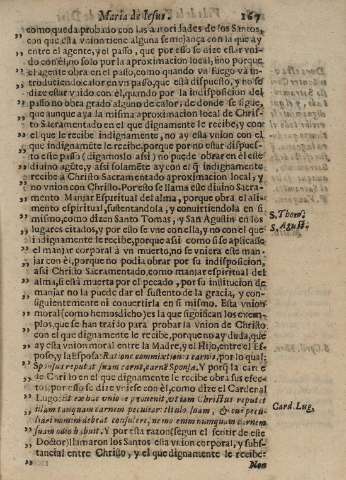 Maria de Iesus. 167
„ como queda probado con las autoridades de los Santos,
„ con que esta vnion tiene alguna semejança con la que ay
„ entre el agente, y el passo, que por esso se dize estar vni-
„ do con él, no solo por la aproximacion local, sino porque
„ el agente obra en el passo, como quando vn fuego vá in-
„ troduciendo calor en él, porque entonces se dize
„ estar vnido con él, quando por la indisposicion del
„ passo no obra grado alguno de calor; de donde se sigue,
„ que aunque aya la misma aproximacion local de Chris-
„ to Sacramentado en el que dignamente le recibe, y con
„ el que le recibe indignamente, no ay esta vnion con el
„ que indignamẽte le recibe, porque por no estar dispues-
„ to este passo (digamoslo assi) no puede obrar en él este
„ diuino agẽte, y assi solamẽte ay con el q̃ indignamente
„ recibe á Christo Sacramentado aproximacion local; y
„ no vnion con Christo. Por esto se llama este diuino Sacra-
„ mento Manjar Espiritual del alma, porque obra el ali-
„ mento espiritual, sustentandola, y conuirtiendola en si
„ mismo, como dizen Santo Tomas, y San Agustin en los
„ lugares citados, y por esto se vne con ella, y no con el que
„ indignamente le recibe, porque assi como si se aplicasse
„ el manjar corporal á vn muerto, no se vniera este man-
„ jar con él, porque no podia obrar por su indisposicion,
„ assi Christo Sacramentado, como manjar espiritual del
„ alma, si está muerta por el pecado, por su institucion de
„ manjar no la puede dar el sustento de la gracia, y con-
„ siguientemente ni conuertirla en si mismo. Esta vnion
„ moral (como hemos dicho) es la que significan los exem-
„ plos, que se han traido para probar la vnion de Christo
„ con el que dignamente le recibe, porque no ay duda, que
„ ay esta vnion moral entre la Madre, y el Hijo, entre el Es-
„ poso, y la Esposa: Ratione commixtionis carnis, por lo qual;
„ Sponsus reputat suam carnẽ, carnẽ Sponsæ. Y porq̃ la carne
„ de Christo en el que dignamente le recibe obra sus efec-
„ tos, por esto se dize vnirse con él, como dize el Cardenal
„ Lugo: ex hac vnione prouenit, vt iam Christus reputet
„ illam tanquam carnem peculiari titulo suam, & ei pecu-
„ liari nomine debeat consulere, nemo enim vnquam carnem
„ suam odio habuit. Y por esta razon (segun el sentir de este
„ Doctor) llamaron los Santos esta vnion corporal, y subs-
„ tancial entre Christo, y el que dignamente le recibe:
Non
S. Thom.
S. Agust.
Card. Lug.